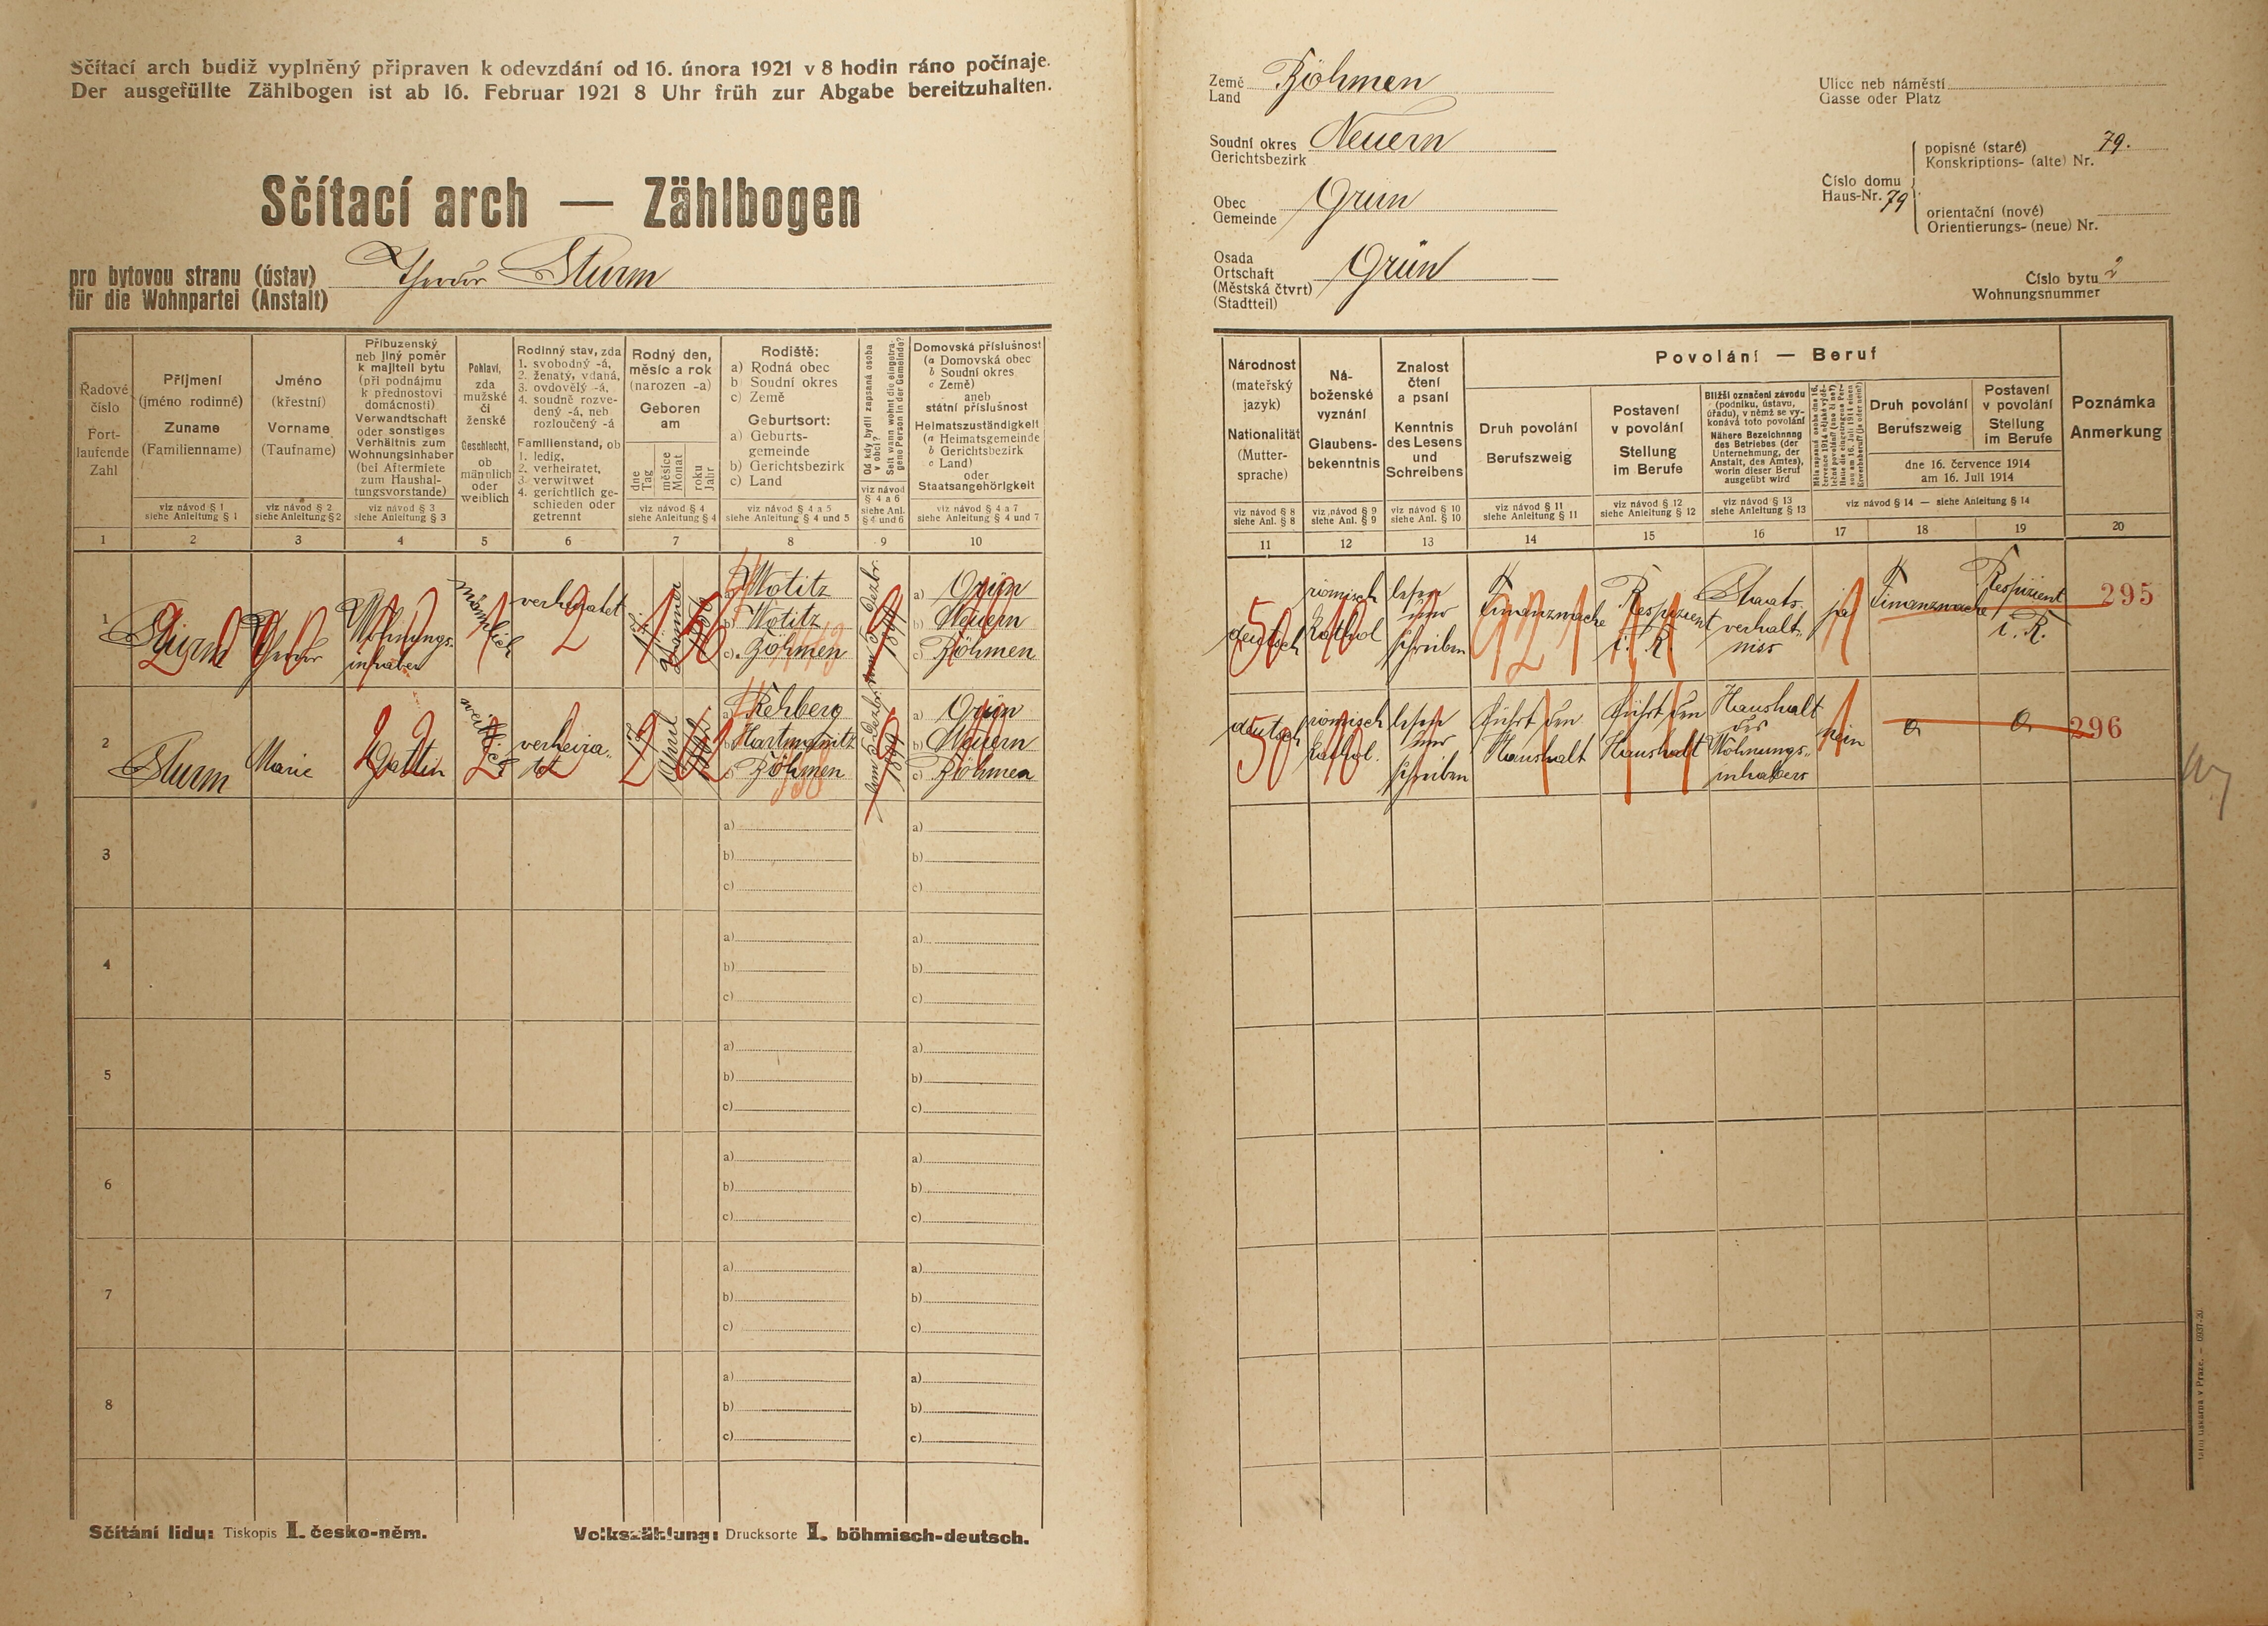 Sčítací arch budiž vyplněný připraven k odevzdání od 16. února 1921 v 8 hodin ráno počínaje.
Der ausgefüllte Zählbogen ist ab 16. Februar 1921 8 Uhr früh zur Abgabe bereitzuhalten.
Sčítací arch — Zählbogen
pro bytovou stranu (ústav)
für die Wohnpartei (Anstalt)
Theodor Sturm
Země
Land
Böhmen
Soudní okres
Gerichtsbezirk
Neuern
Obec
Gemeinde
Grün
Osada
Ortschaft
(Městská čtvrt)
(Stadtteil)
Grün
Ulice neb náměstí
Gasse oder Platz
Číslo domu
Haus-Nr. 79
popisné (staré)
Konskriptions- (alte) Nr. 79.
orientační (nové)
Orientierungs- (neue) Nr.
Číslo bytu 2
Wohnungsnummer
Řadové
číslo
Fort-
laufende
Zahl
1
Příjmení
(jméno rodinné)
Zuname
(Familienname)
viz návod § 1
siehe Anleitung § 1
2
Jméno
(křestní)
Vorname
(Taufname)
viz návod § 2
siehe Anleitung § 2
3
Příbuzenský
neb jiný poměr
k majiteli bytu
(při podnájmu
k přednostovi
domácnosti)
Verwandtschaft
oder sonstiges
Verhältnis zum
Wohnungsinhaber
(bei Aftermiete
zum Haushal-
tungsvorstande)
viz návod § 3
siehe Anleitung § 3
4
Pohlaví,
zda
mužské
či
ženské
Geschlecht,
ob
männlich
oder
weiblich
5
Rodinný stav, zda
1. svobodný -á,
2. ženatý, vdaná,
3. ovdovělý -á,
4. soudně rozve-
dený -á, neb
rozloučený -á
Familienstand, ob
1. ledig,
2. verheiratet,
3. verwitwet
4. gerichtlich ge-
schieden oder
getrennt
6
Rodný den,
měsíc a rok
(narozen -a)
Geboren
am
dne
Tag
měsíce
Monat
roku
Jahr
viz návod § 4
siehe Anleitung § 4
7
Rodiště:
a) Rodná obec
b) Soudní okres
c) Země
Geburtsort:
a) Geburts-
gemeinde
b) Gerichtsbezirk
c) Land
viz návod § 4 a 5
siehe Anleitung § 4 und 5
8
Od kdy bydlí zapsaná osoba
v obci?
Seit wann wohnt die eingetra-
gene Person in der Gemeinde?
viz návod
§ 4 a 6
siehe Anl.
§ 4 und 6
9
Domovská příslušnost
(a Domovská obec
b Soudní okres
c Země)
aneb
státní příslušnost
Heimatszuständigkeit
(a Heimatsgemeinde
b Gerichtsbezirk
c Land)
oder
Staatsangehörigkeit
viz návod § 4 a 7
siehe Anleitung § 4 und 7
10
Národnost
(mateřský
jazyk)
Nationalität
(Mutter-
sprache)
viz návod § 8
siehe Anl. § 8
11
Ná-
boženské
vyznání
Glaubens-
bekenntnis
viz návod § 9
siehe Anl. § 9
12
Znalost
čtení
a psaní
Kenntnis
des Lesens
und
Schreibens
viz návod § 10
siehe Anl. § 10
13
Povolání — Beruf
Druh povolání
Berufszweig
viz návod § 11
siehe Anleitung § 11
14
Postavení
v povolání
Stellung
im Berufe
viz návod § 12
siehe Anleitung § 12
15
Bližší označení závodu
(podniku, ústavu,
úřadu), v němž se vy-
konává toto povolání
Nähere Bezeichnung
des Betriebes (der
Unternehmung, der
Anstalt, des Amtes),
worin dieser Beruf
ausgeübt wird
viz návod § 13
siehe Anleitung § 13
16
17
Druh povolání
Berufszweig
Postavení
v povolání
Stellung
im Berufe
dne 16. července 1914
am 16. Juli 1914
viz návod § 14 — siehe Anleitung § 14
18
19
Poznámka
Anmerkung
20
1
Sturm
Theodor
Wohnungs-
inhaber
männlich
verheiratet
Jänner
a) Wotitz
b) Wotitz
c) Böhmen
a) Grün
b) Neuern
c) Böhmen
deutsch
römisch
kathol
lesen
und
schreiben
Finanzwache
Respizient
i. R.
Staats-
verhält-
niss
ja
Finanzwache
Respizient
i. R.
295
2
Sturm
Marie
Gattin
weiblich
verheira-
tet
17
April
a) Rehberg
b) Hartmanitz
c) Böhmen
a) Grün
b) Neuern
c) Böhmen
deutsch
römisch
kathol.
lesen
und
schreiben
führt den
Haushalt
führt den
Haushalt
Haushalt
des
Wohnungs-
inhabers
nein
296
3
a)
b)
c)
a)
b)
c)
4
a)
b)
c)
a)
b)
c)
5
a)
b)
c)
a)
b)
c)
6
a)
b)
c)
a)
b)
c)
7
a)
b)
c)
a)
b)
c)
8
a)
b)
c)
a)
b)
c)
Sčítání lidu: Tiskopis I. česko-něm.
Volkszählung: Drucksorte I. böhmisch-deutsch.